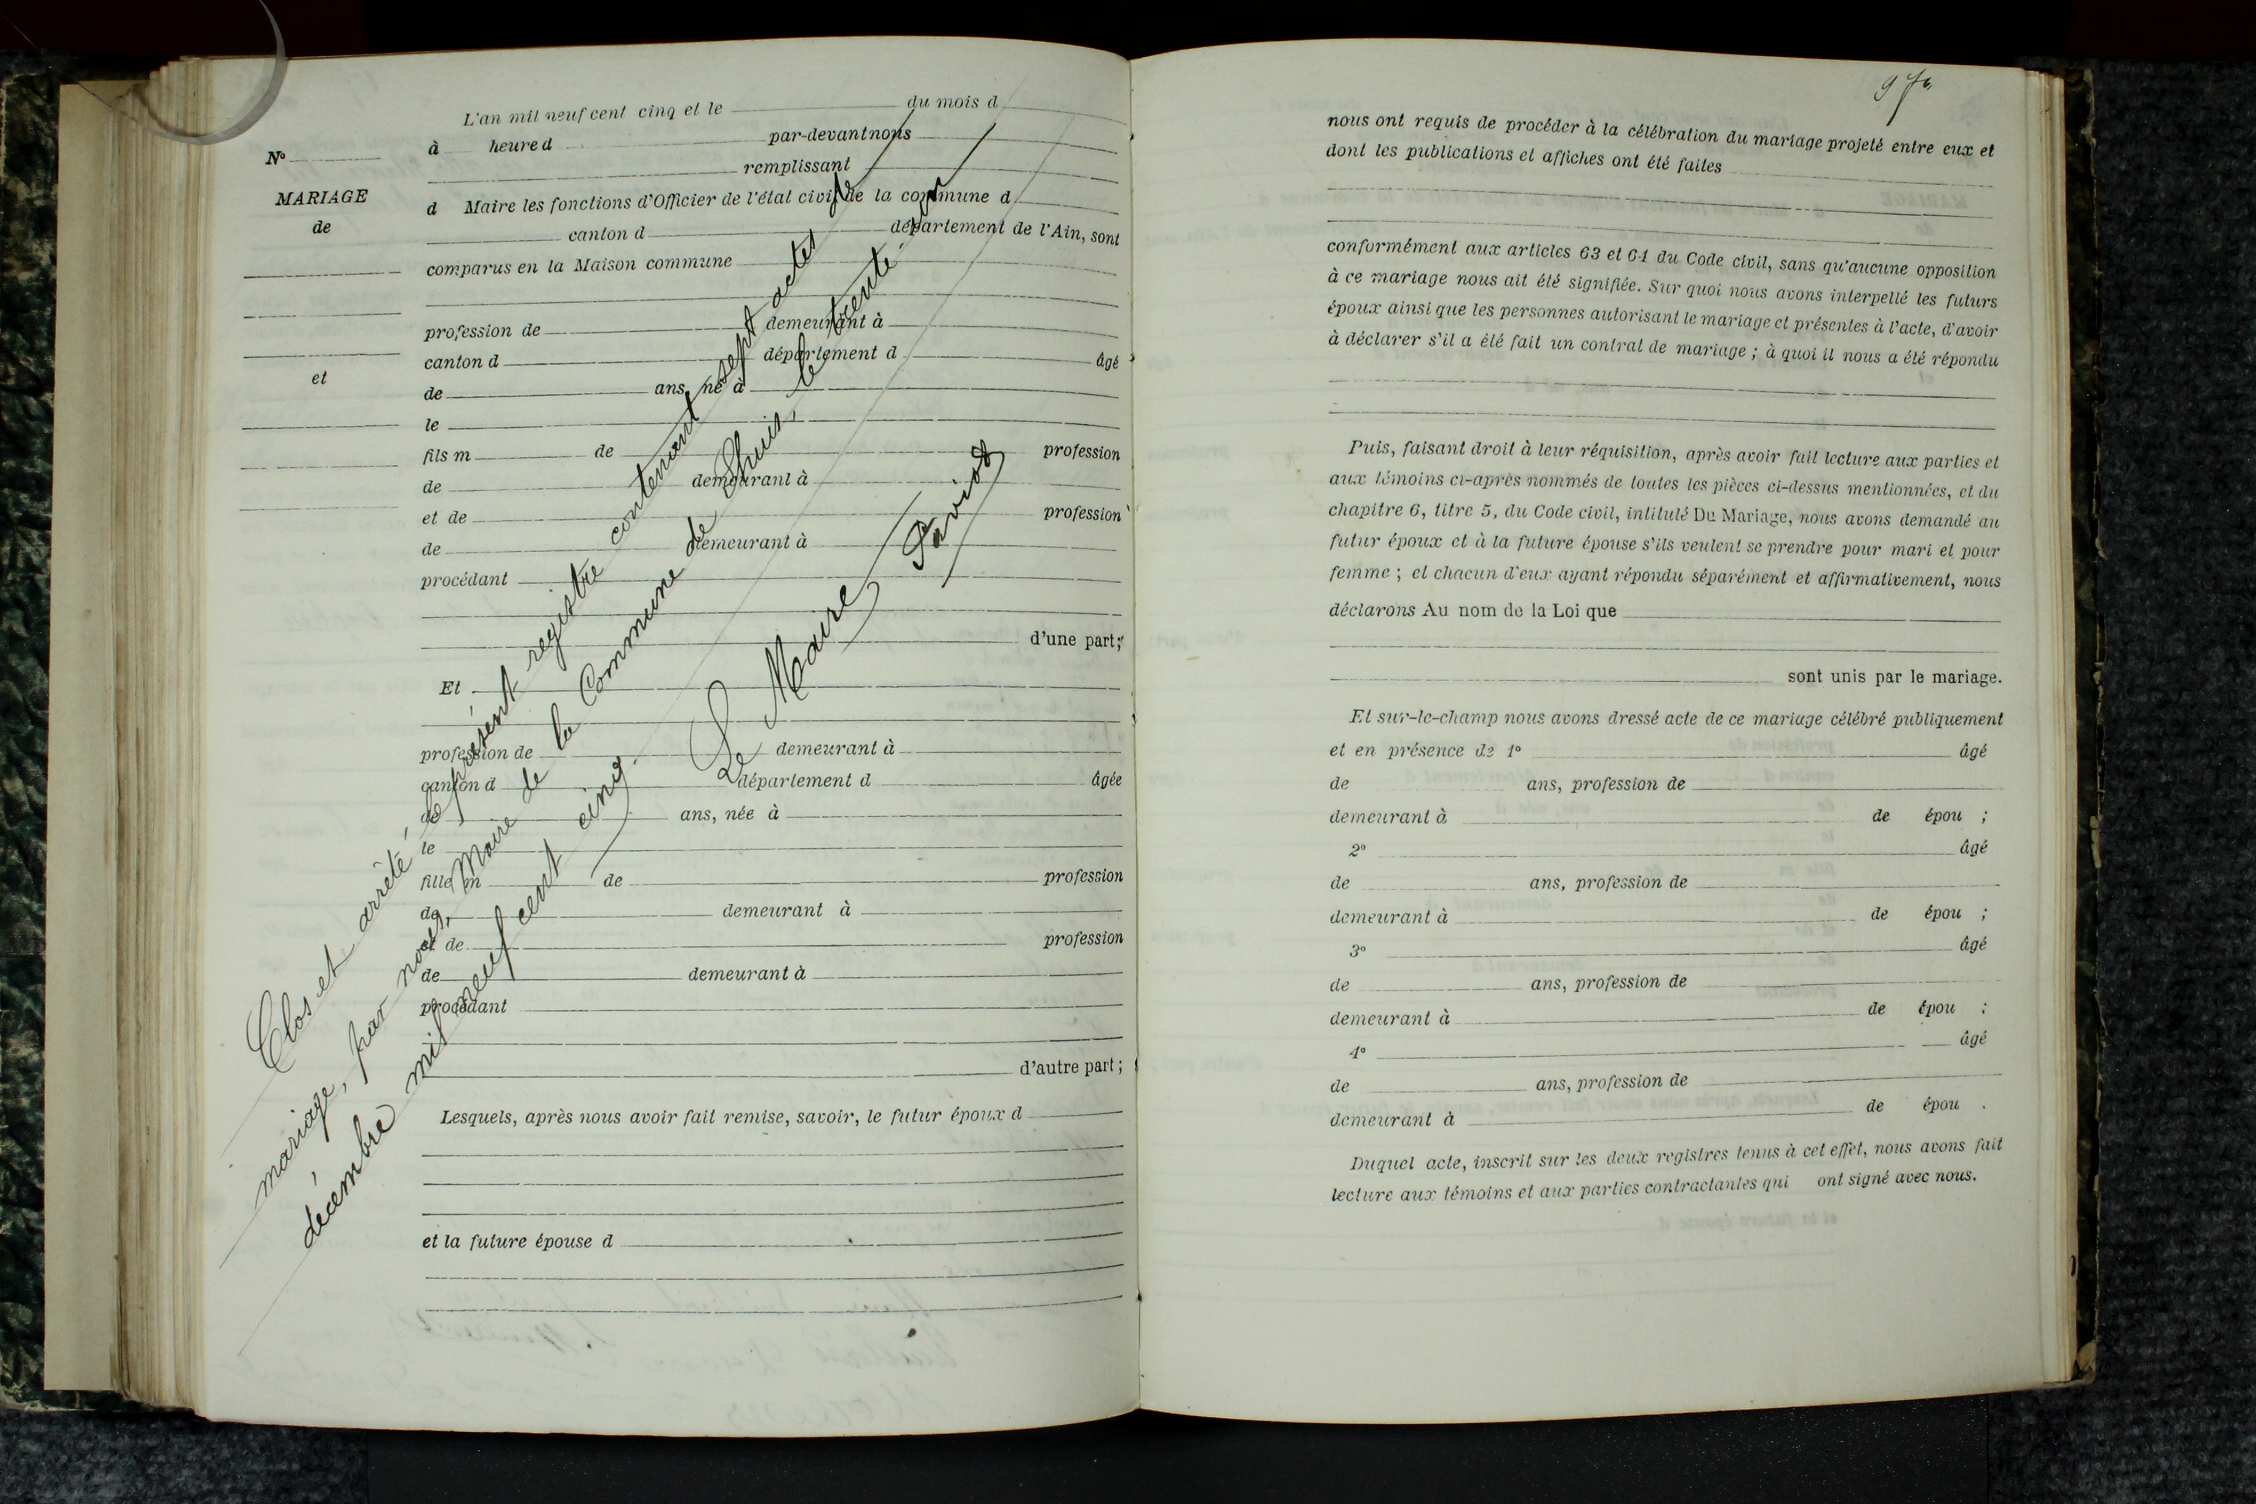 L'an mil neuf cent cinq et le du mois d
à heure d par-devant nous
remplissant
d Maire les fonctions d'Officier de l'état civil de la commune d
canton d département de l'Ain, sont
comparus en la Maison commune
profession de demeurant à
canton d département d âgé
de ans, né à
le
fils m de profession
de demeurant à
et de profession
de demeurant à
procédant
d'une part;
Et
profession de demeurant à
canton d département d âgée
de ans, née à
le
fille m de profession
de demeurant à
et de profession
de demeurant à
procédant
d'autre part;
Lesquels, après nous avoir fait remise, savoir, le futur époux d
et la future épouse d
N°
MARIAGE
de
et
Clos et arrêté le présent registre contenant sept actes de
mariage, par nous, Maire de la Commune de Lhuis, le trente-un
décembre mil neuf cent cinq.
Le Maire
nous ont requis de procéder à la célébration du mariage projeté entre eux et
dont les publications et affiches ont été faites
conformément aux articles 63 et 64 du Code civil, sans qu'aucune opposition
à ce mariage nous ait été signifiée. Sur quoi nous avons interpellé les futurs
époux ainsi que les personnes autorisant le mariage et présentes à l'acte, d'avoir
à déclarer s'il a été fait un contrat de mariage; à quoi il nous a été répondu
Puis, faisant droit à leur réquisition, après avoir fait lecture aux parties et
aux témoins ci-après nommés de toutes les pièces ci-dessus mentionnées, et du
chapitre 6, titre 5, du Code civil, intitulé Du Mariage, nous avons demandé au
futur époux et à la future épouse s'ils veulent se prendre pour mari et pour
femme; et chacun d'eux ayant répondu séparément et affirmativement, nous
déclarons Au nom de la Loi que
sont unis par le mariage.
Et sur-le-champ nous avons dressé acte de ce mariage célébré publiquement
et en présence de 1° âgé
de ans, profession de
demeurant à de épou ;
2° âgé
de ans, profession de
demeurant à de épou ;
3° âgé
de ans, profession de
demeurant à de épou ;
4° âgé
de ans, profession de
demeurant à de épou .
Duquel acte, inscrit sur les deux registres tenus à cet effet, nous avons fait
lecture aux témoins et aux parties contractantes qui ont signé avec nous.